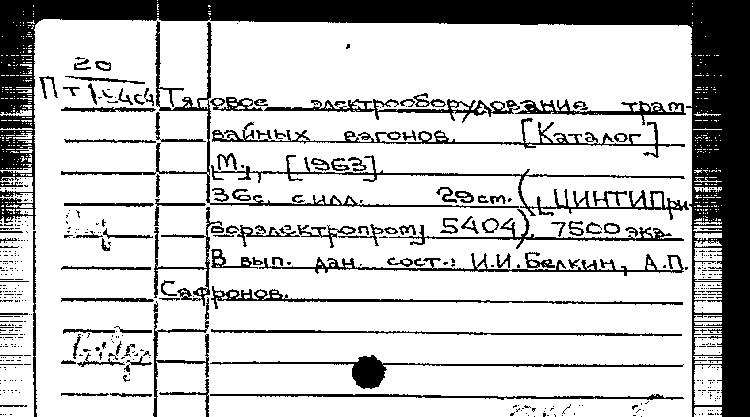 20
Тяговое электрооборудование трам-
вайных вагонов. [Каталог]
[М.], [1963].
36с. с илл. 29см. (ЦИНТИПри-
борэлектропром 5404). 7500 экз.
В вып. дан. сост.: И.И. Белкин, А.П.
Сафронов.